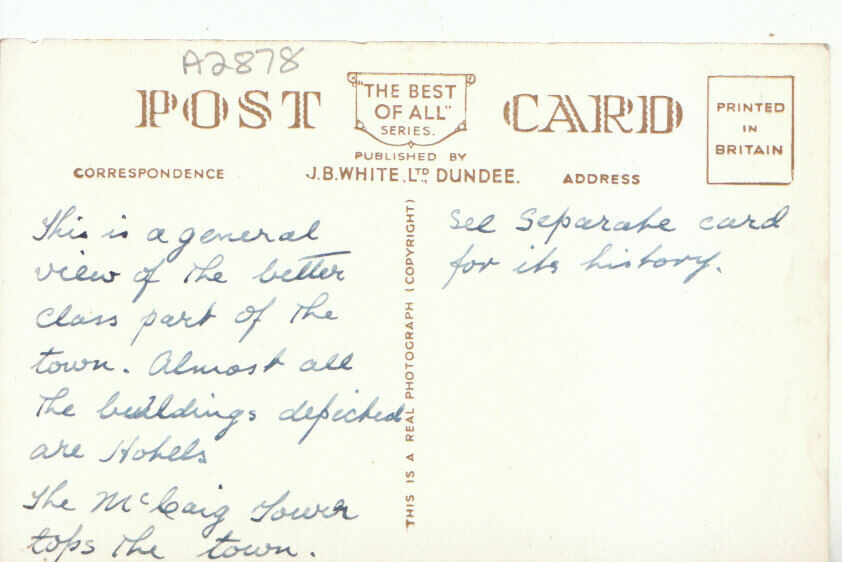 A2878
POST CARD
"THE BEST
OF ALL"
SERIES.
PUBLISHED BY
J.B.WHITE, LTD, DUNDEE.
PRINTED
IN
BRITAIN
CORRESPONDENCE
ADDRESS
This is a general
view of the better
class part of the
town. Almost all
the buildings depicted
are Hotels
The McCaig Tower
tops the town.
THIS IS A REAL PHOTOGRAPH (COPYRIGHT)
See Separate card
for its history.